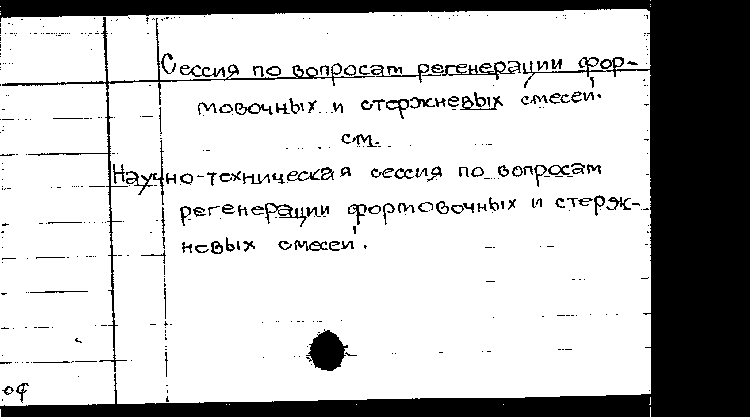 Сессия по вопросам регенерации фор-
мовочных и стержневых смесей.
см.
Научно-техническая сессия по вопросам
регенерации формовочных и стерж-
невых смесей.
оф